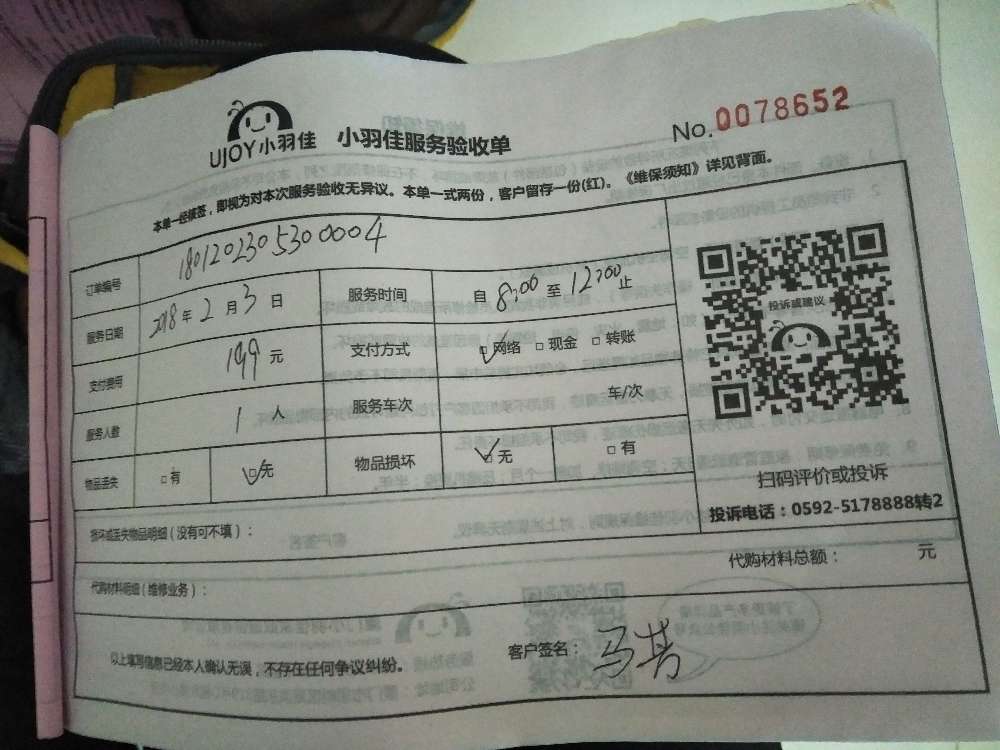 UJOY小羽佳 小羽佳服务验收单 No.0078652
本单一经接签，即视为对本次服务验收无异议。本单一式两份，客户留存一份(红)。《维保须知》详见背面。
订单编号 1801202305300004
服务日期 2018年2月3日 服务时间 自8:00至12:00止
支付费用 199元 支付方式 □网络 □现金 □转账
服务人数 1人 服务车次 车/次
物品丢失 □有 □无 物品损坏 □无 □有
投诉或建议
扫码评价或投诉
投诉电话：0592-5178888转2
损坏或丢失物品明细（没有可不填）：
代购材料明细（维修业务）： 代购材料总额： 元
以上填写信息已经本人确认无误，不存在任何争议纠纷。 客户签名：